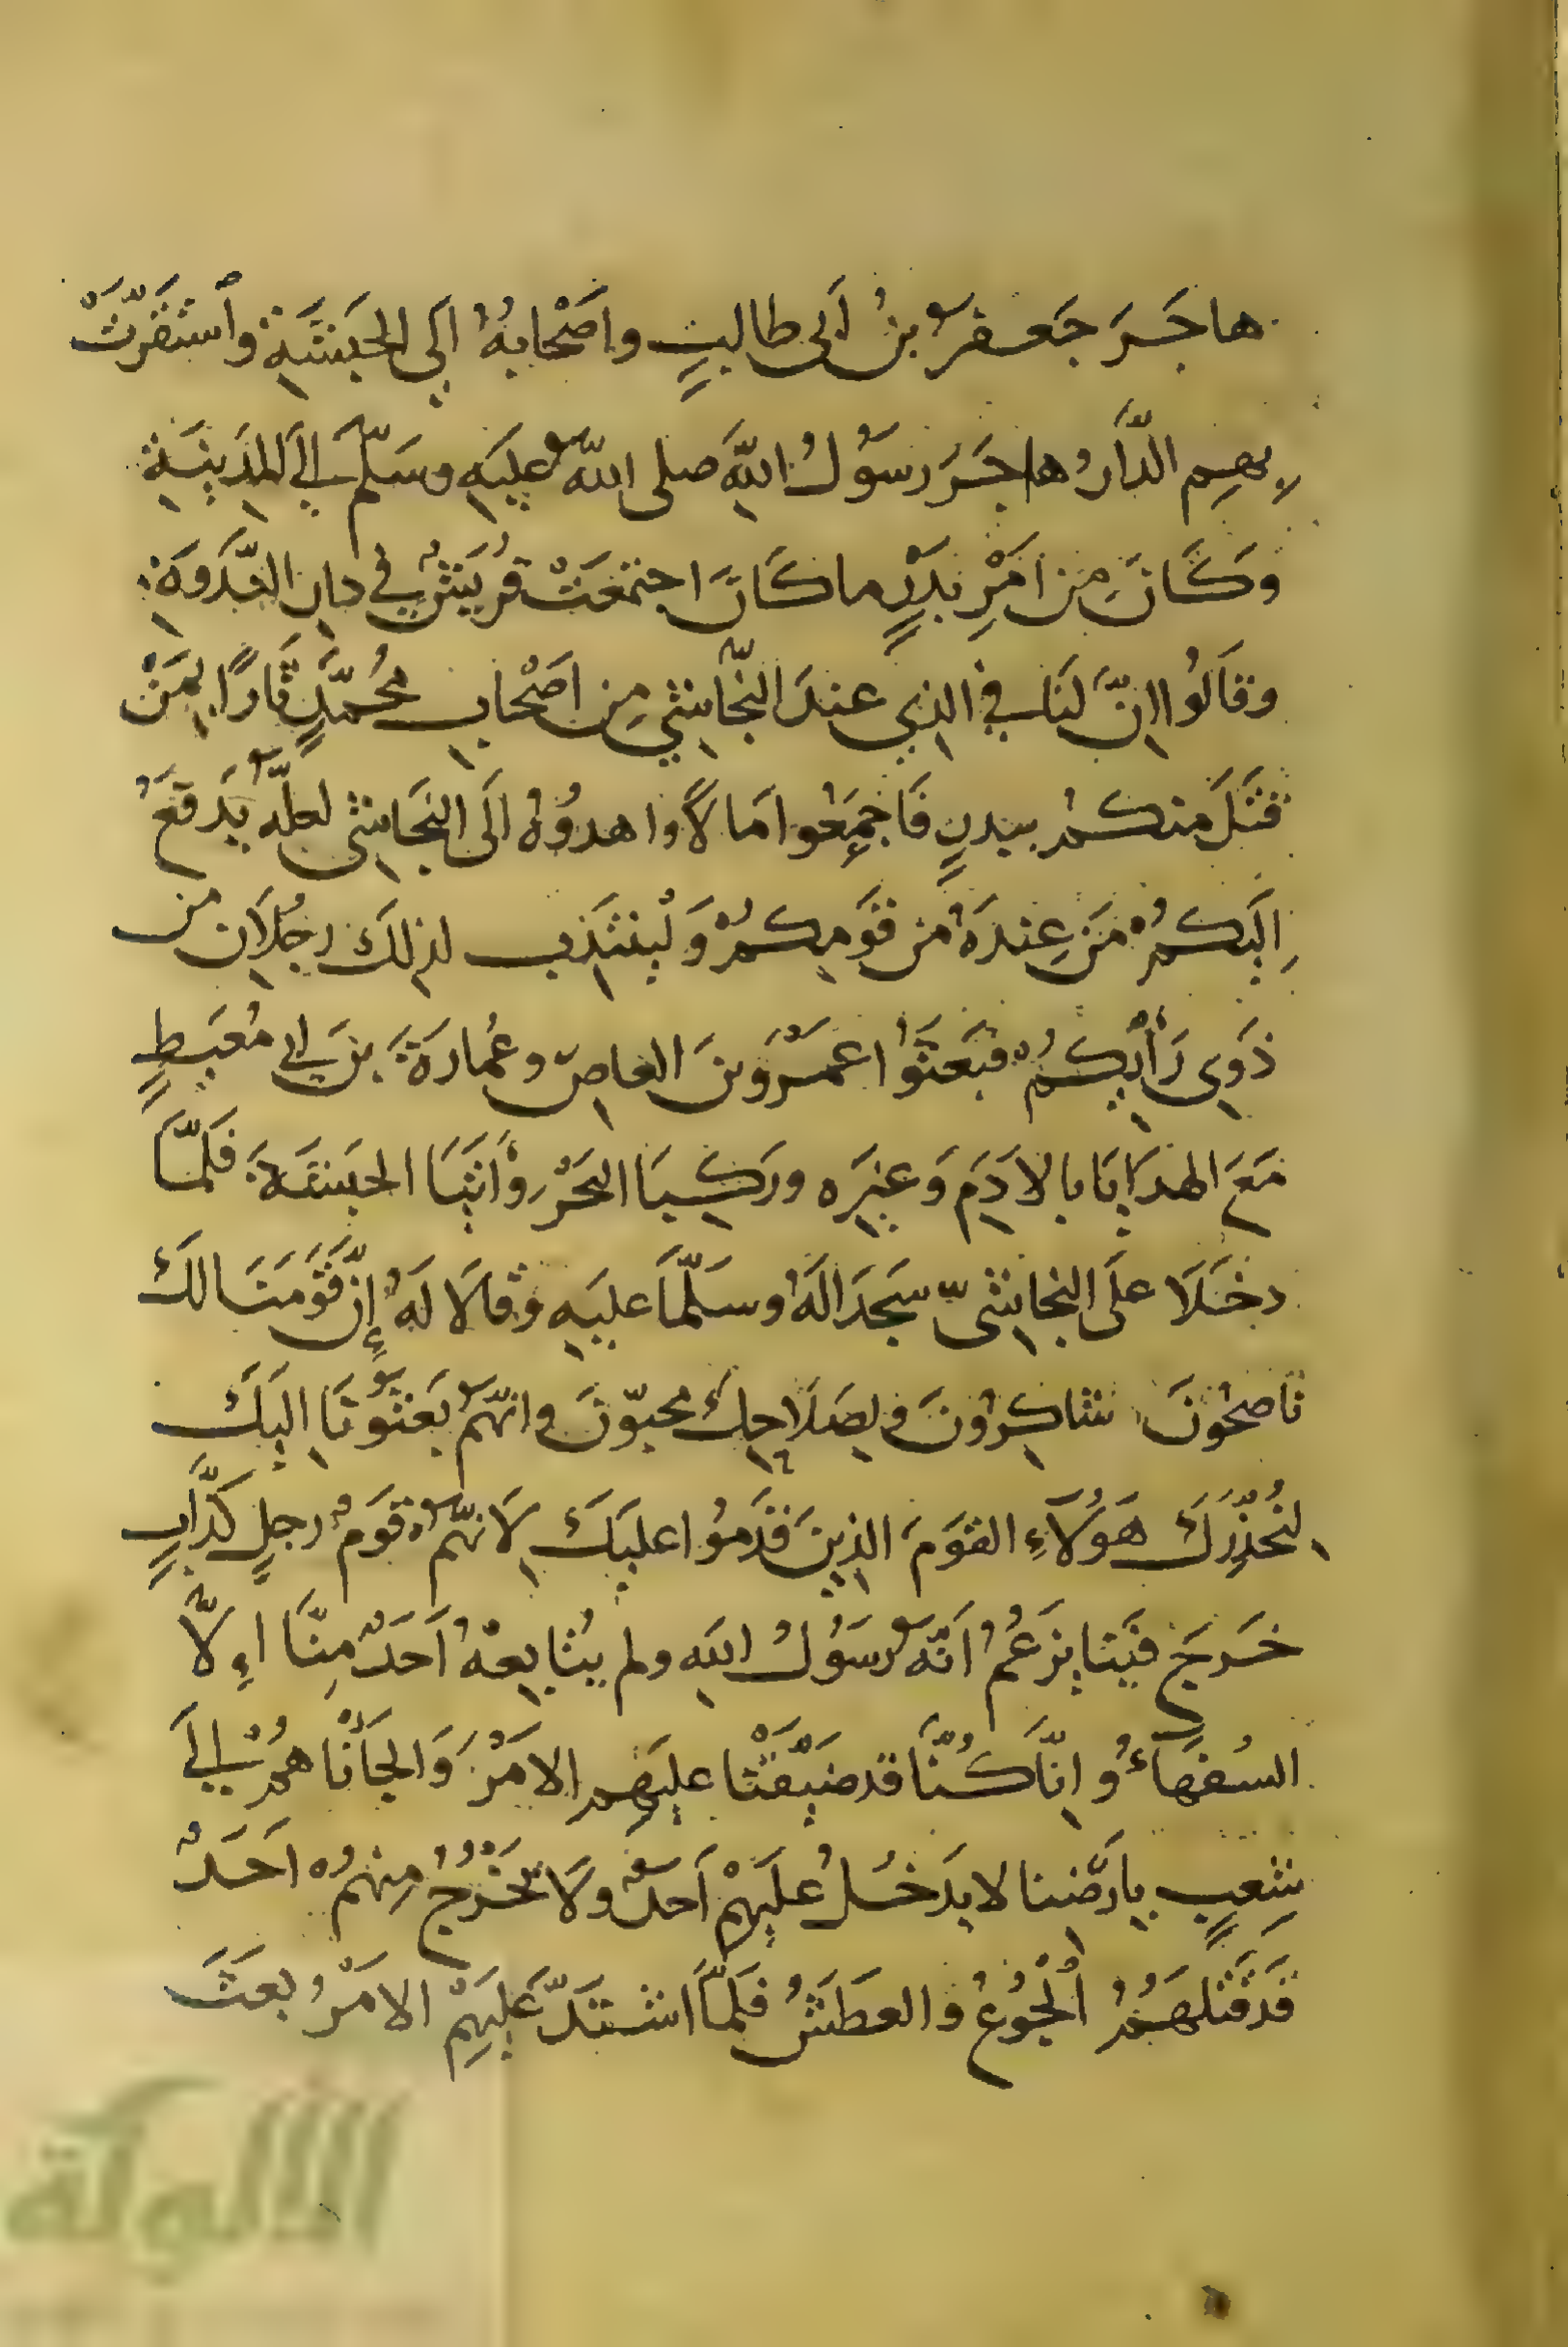 هاجَرَ جَعفرُ بنُ اَبى طالبٍ واَصْحابهُ اِلَى الحَبشَةِ وٱستَقرَّتْ
بِهِم الدَّارُ وهاجَرَ رسَوُلُ اللهِ صلى اللهُ عليَهِ وسَلّم اِلَى المدَينَةِ
وَكَانَ مِن اَمْرِ بَدْرٍ ما كَانَ اجتمَعَتْ قُريَشٌ فى دارِ النَّدوَةِ
وقَالَوُا اِنَّ لَنَا فى الذِي عندَ النَّجَاشِي مِن اَصْحابِ محُمَّدٍ ثَارًا بِمَنْ
قتَلَ منكمُ ببدرٍ فَاجمَعُوا مَالاً واهدوُهُ اِلَى النَّجَاشِى لعلَّهُ يَدفَعُ
اِلَيكمُ مَن عِندَهُ من قَومِكمُ وَليُنتَدَب لذلكَ رجُلاَن من
ذَوِي رَأيكمُ فبَعَثوُا عَمْرَو بنَ العاصِ وعُمارَةَ بنَ اَبى مُعيَطٍ
مَعَ الهدَايَا بالاَدَمِ وَغيرَه ورَكبَا البَحْرَ وأَتيَا الحَبشَةَ فلَمَّا
دخَلاَ علَى النجاشىّ سَجَدَا لَهُ وسَلَّمَا عليَهِ وقالاَ لَهُ إِنَّ قَومَنَا لكَ
ناصحُونَ شاكِرُونَ ولِصَلاَحِكَ محبّوُنَ وانَّهمُ بَعَثوُنَا اليَكَ
لنُحذِّرَكَ هَؤُلاَءِ القوَمَ الذينَ قَدَموُا عليَكَ لاَنَّهمُ قوَمُ رجلٍ كَذَّابٍ
خَرجَ فيَنا يزَعُمُ اَنَّهُ رسَوُلُ اللهِ ولم يتُابِعهُ اَحَدٌ مِنَّا اِلاَّ
السُفهَآءُ وانَّا كُنَّا قد ضَيَّقْنَا عليَهم الاَمْرَ وَاَلجَأْنَاهمُ اِلَى
شِعبٍ بِاَرضِنا لا يدَخُلُ علَيهِمْ اَحدٌ ولاَ يَخرُجُ مِنهمُ اَحَدٌ
قدَ قتَلهَمُ ٱلجُوُعُ والعطَشُ فلَمَّا اشتَدَّ عَليَهِمْ الاَمْرُ بعَثَ
الألوكة